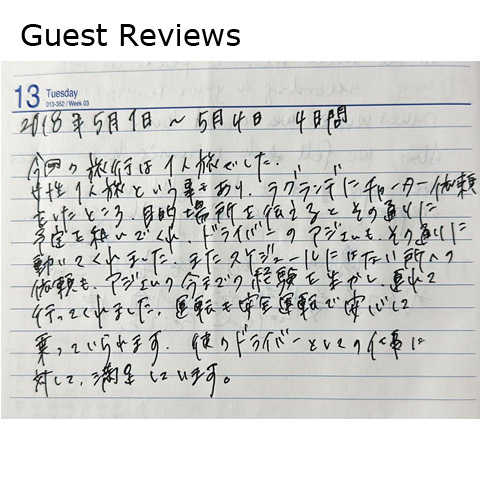 Guest Reviews
13 Tuesday
013-352 / Week 03
2018年5月1日 ~ 5月4日 4日間
今回の旅行は1人旅でした.
女性1人旅という事もあり、ラグランデにチャーター依頼
をしたところ、目的場所を伝えるとその通りに
予定を組んでくれ、ドライバーのアジェいも、その通りに
動いてくれました. またスケジュールにはない所への
依頼も、アジェいの今までの経験を生かし、連れて
行ってくれました. 運転も安全運転で安心して
乗っていられます. 彼のドライバーとしての仕事に
対して、満足しています。